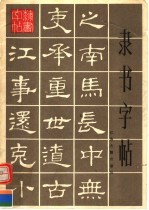 隶书字帖
之南馬長中無
承重世遺古
江事還克
隸書字帖